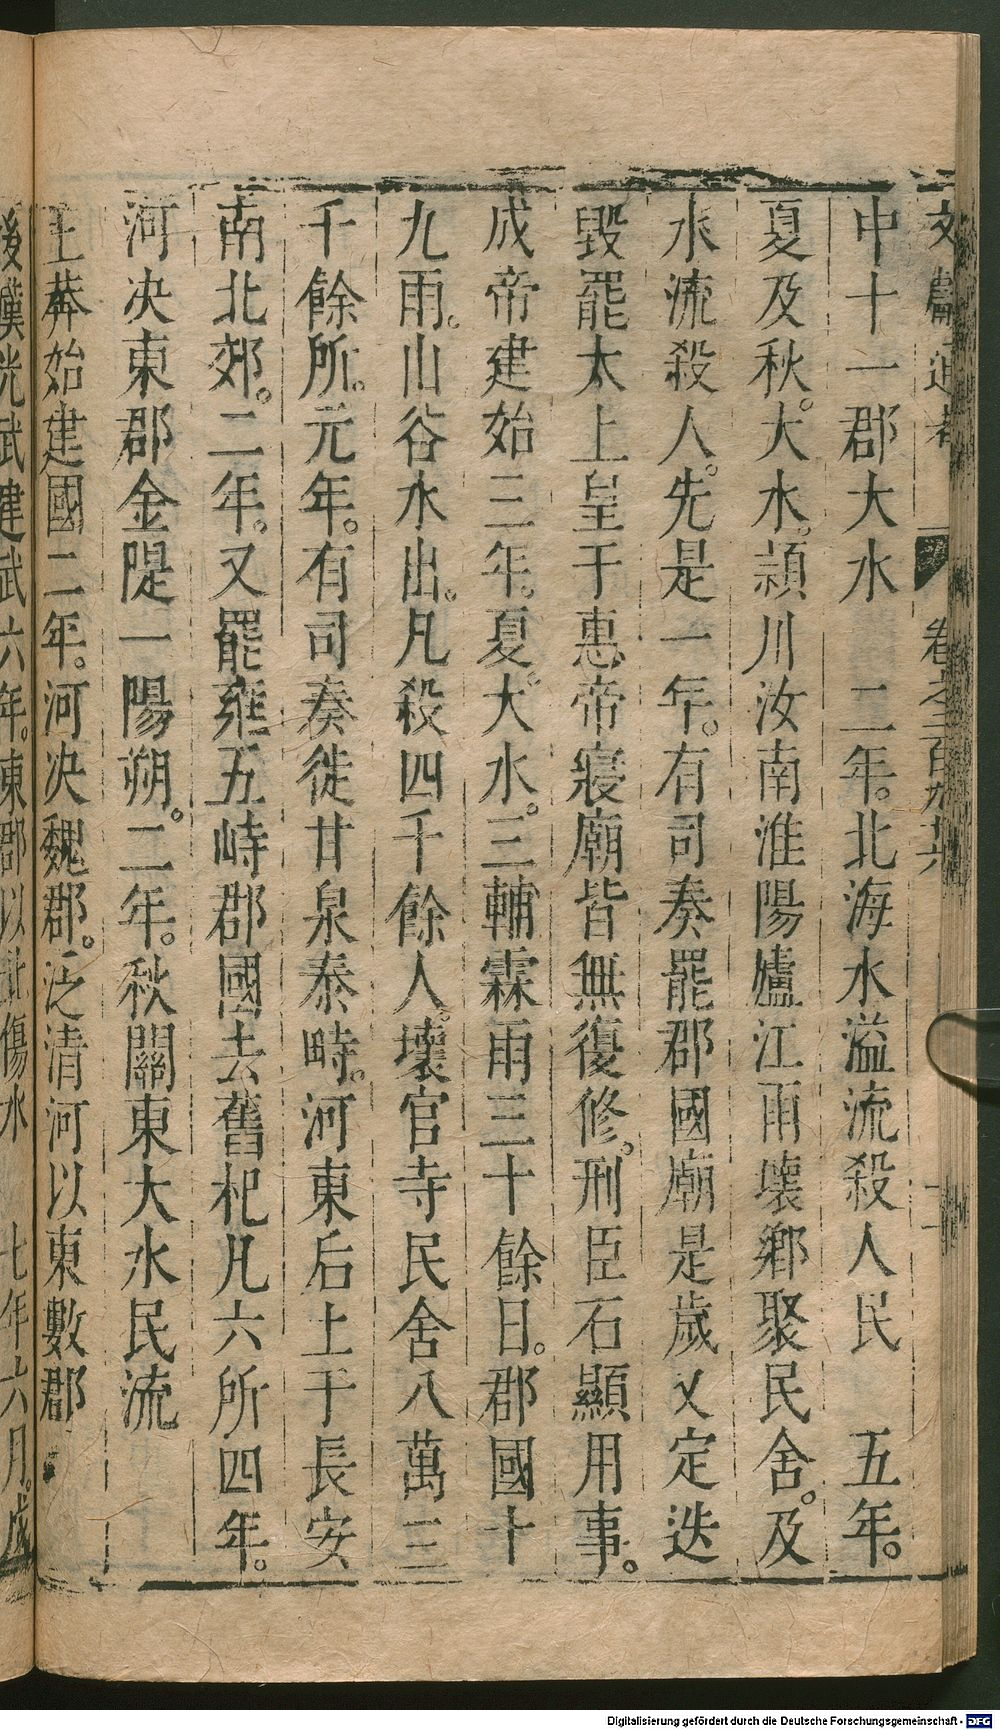 文獻通考 卷之二百九十六
中十一郡大水 二年。北海水溢流殺人民 五年。
夏及秋。大水。潁川汝南淮陽廬江雨壞鄉聚民舍。及
水流殺人。先是一年。有司奏罷郡國廟是歲又定迭
毀罷太上皇于惠帝寢廟皆無復修。刑臣石顯用事。
成帝建始三年。夏。大水。三輔霖雨三十餘日。郡國十
九雨。山谷水出。凡殺四千餘人。壞官寺民舍八萬三
千餘所。元年。有司奏徙甘泉泰畤。河東后土于長安
南北郊。二年。又罷雍五峙郡國去舊杞凡六所四年。
河决東郡金隄一陽朔。二年。秋關東大水民流
王莽始建國二年。河决魏郡。泛清河以東數郡
後漢光武建武六年。東郡以北傷水 七年六月。
Digitalisierung gefördert durch die Deutsche Forschungsgemeinschaft - DFG